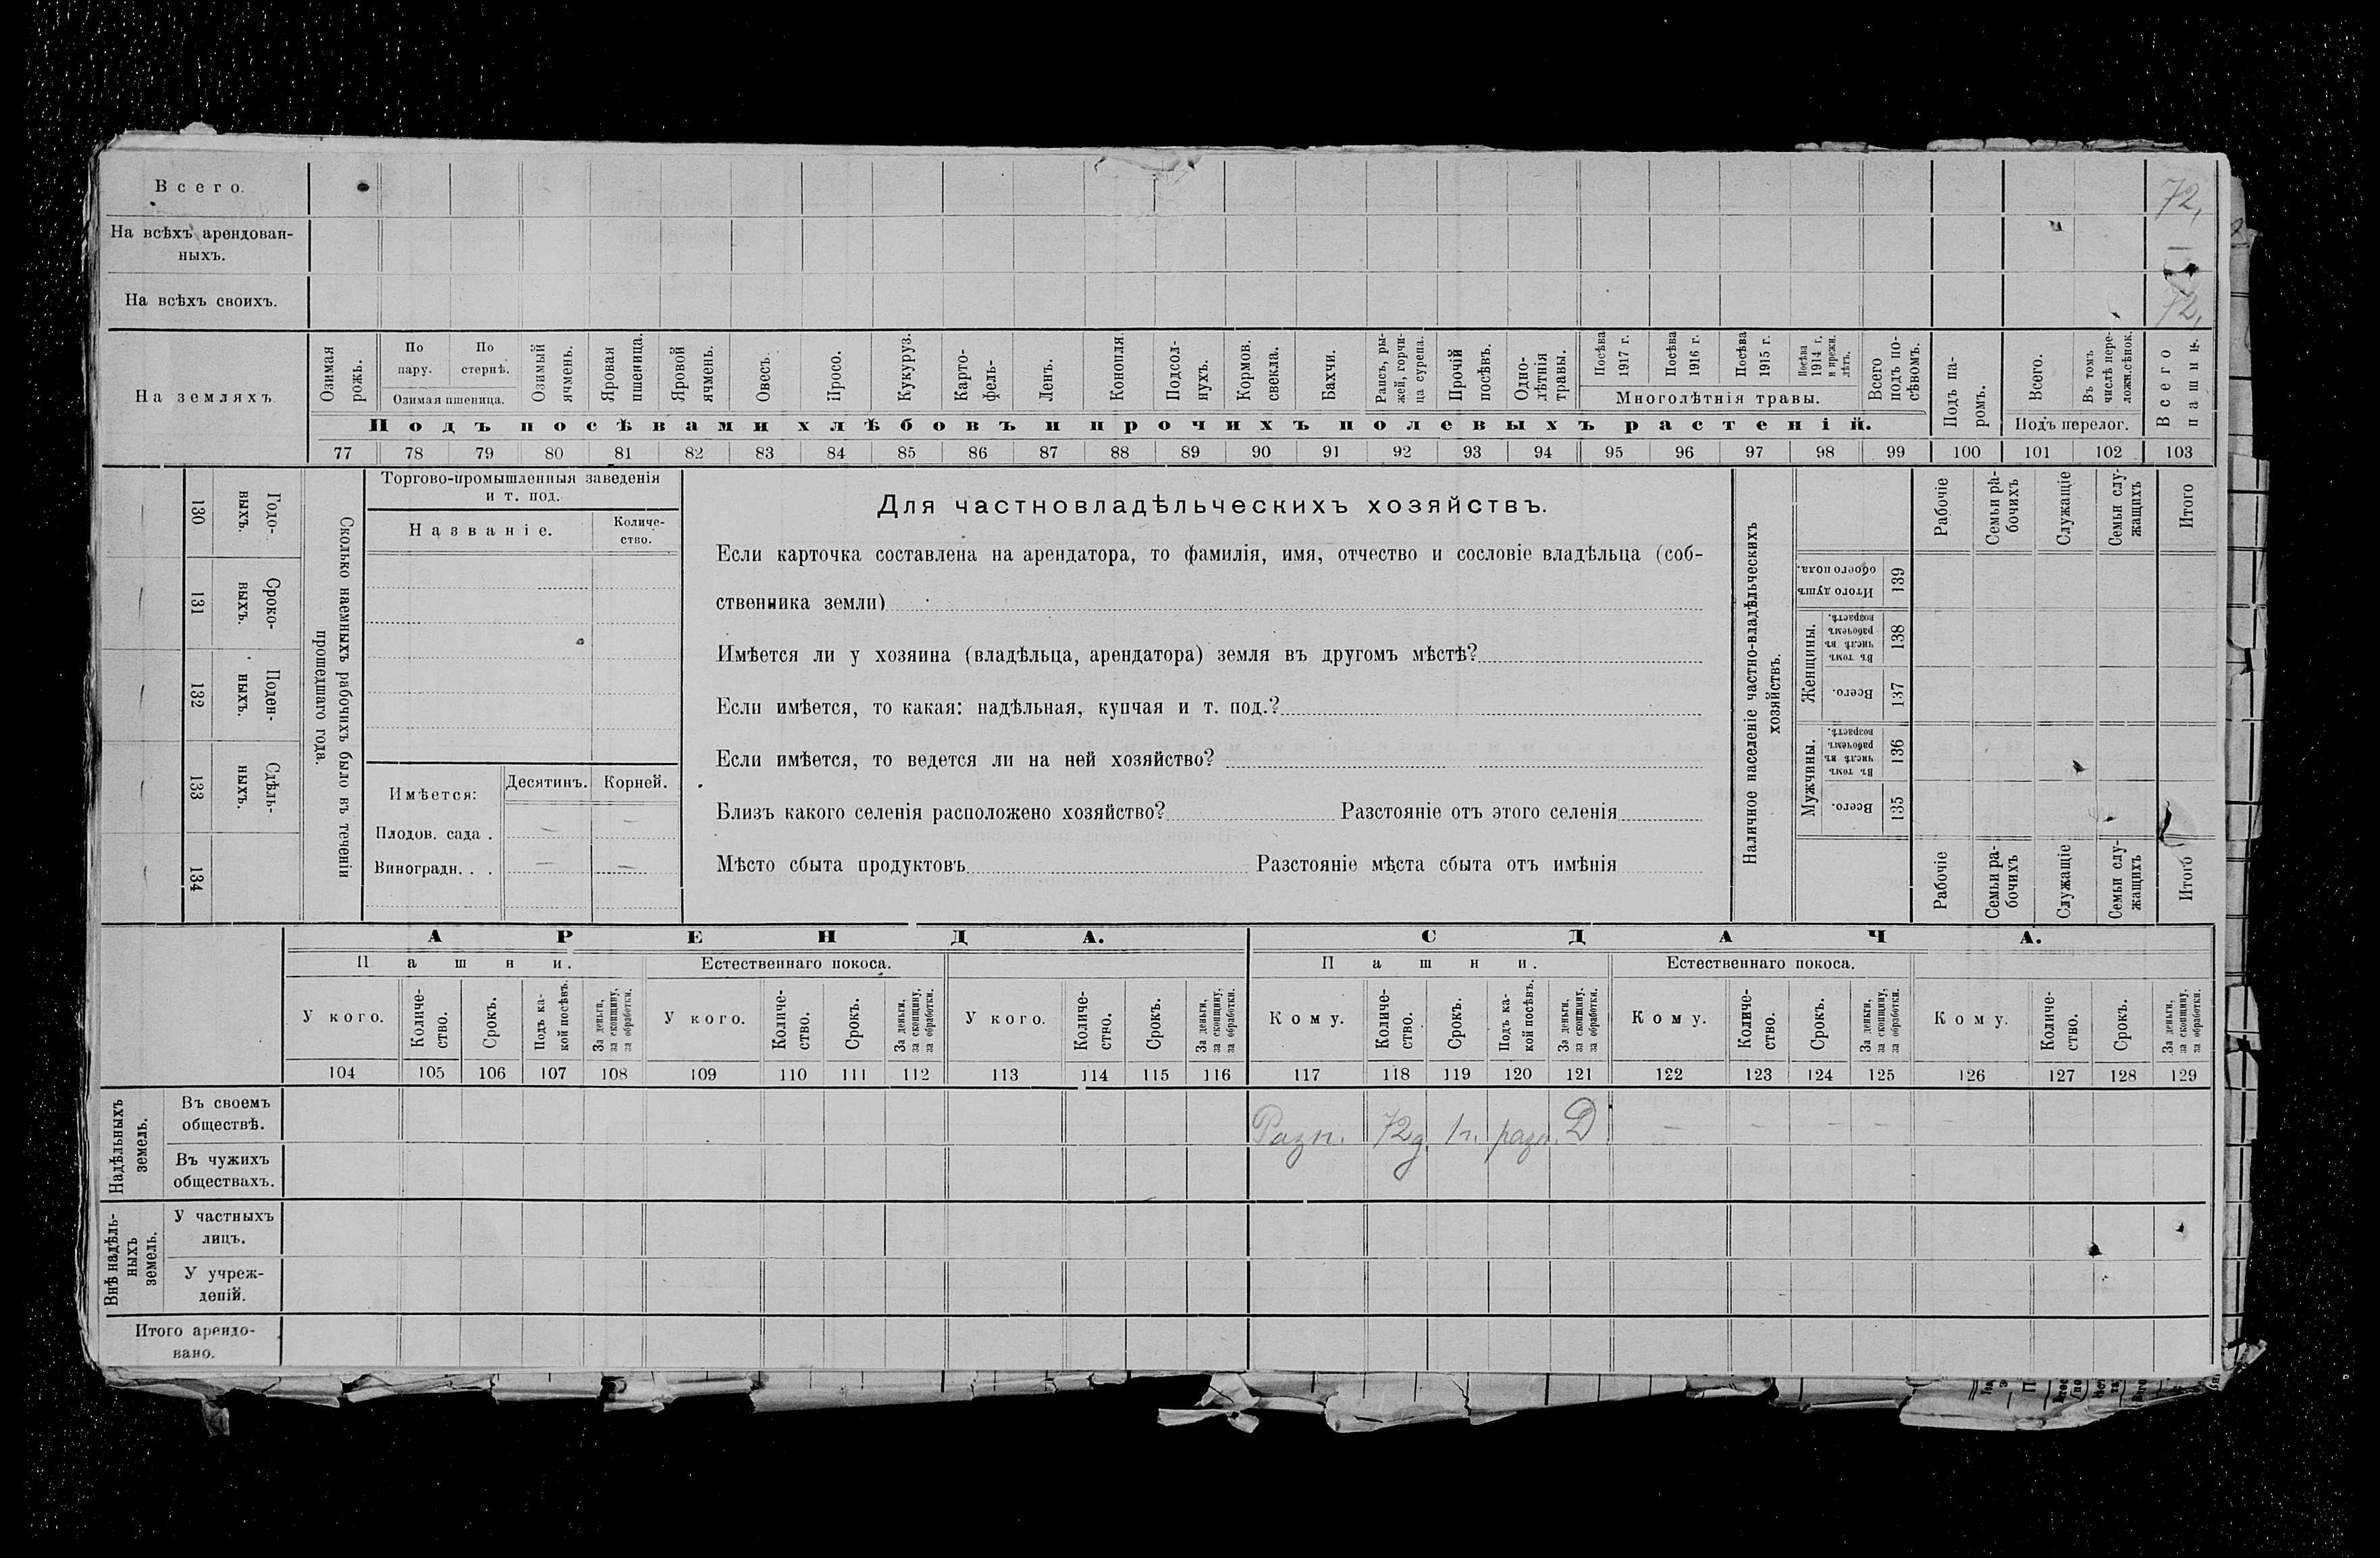 Всего.
72,
На всѣхъ арендован-
ныхъ.
На всѣхъ своихъ.
72,
На земляхъ
Озимая
рожь.
По
пару.
По
стернѣ.
Озимая пшеница.
Озимый
ячмень.
Яровая
пшеница.
Яровой
ячмень.
Овесъ.
Просо.
Кукуруз.
Карто-
фель-
Ленъ.
Конопля.
Подсол-
нухъ.
Кормов.
свекла.
Бахчи.
Рапсъ, ры-
жей, горчи-
ца сурепа.
Прочій
посѣвъ.
Одно-
лѣтнія
травы.
Посѣва
1917 г.
Посѣва
1916 г.
Посѣва
1915 г.
Посѣва
1914 г.
и прежн.
лѣтъ.
Многолѣтнія травы.
Всего
подъ по-
сѣвомъ.
Подъ посѣвами хлѣбовъ и прочихъ полевыхъ растеній.
Подъ па-
ромъ.
Всего.
Въ томъ
числѣ пере-
ложн.сѣнок.
Подъ перелог.
Всего
пашни.
77 78 79 80 81 82 83 84 85 86 87 88 89 90 91 92 93 94 95 96 97 98 99 100 101 102 103
Годо-
выхъ.
130
Сроко-
ныхъ.
131
Поден-
ныхъ.
132
Сдѣль-
ныхъ.
133
134
Сколько наемныхъ рабочихъ было въ теченіи
прошедшаго года.
Торгово-промышленныя заведенія
и т. под.
Названіе.
Количе-
ство.
Имѣется:
Десятинъ.
Корней.
Плодов. сада .
Виноградн. . .
Для частновладѣльческихъ хозяйствъ.
Если карточка составлена на арендатора, то фамилія, имя, отчество и сословіе владѣльца (соб-
ственника земли)
Имѣется ли у хозяина (владѣльца, арендатора) земля въ другомъ мѣстѣ?
Если имѣется, то какая: надѣльная, купчая и т. под.?
Если имѣется, то ведется ли на ней хозяйство?
Близъ какого селенія расположено хозяйство? Разстояніе отъ этого селенія
Мѣсто сбыта продуктовъ Разстояніе мѣста сбыта отъ имѣнія
Наличное населеніе частно-владѣльческихъ
хозяйствъ.
Рабочіе
Семьи ра-
бочихъ
Служащіе
Семьи слу-
жащихъ
Итого
Итого душъ
обоего пола.
139
Женщины.
Въ томъ
числѣ въ
рабочемъ
возрастѣ.
138
Всего.
137
Мужчины.
Въ томъ
числѣ въ
рабочемъ
возрастѣ.
136
Всего.
135
Рабочіе
Семьи ра-
бочихъ
Служащіе
Семьи слу-
жащихъ
Итого
АРЕНДА.
СДАЧА.
Пашни.
Естественнаго покоса.
Пашни.
Естественнаго покоса.
У кого.
Количе-
ство.
Срокъ.
Подъ ка-
кой посѣвъ.
За деньги,
за скопщину,
за обработки.
У кого.
Количе-
ство.
Срокъ.
За деньги,
за скопщину,
за обработки.
У кого.
Количе-
ство.
Срокъ.
За деньги,
за скопщину,
за обработки.
Кому.
Количе-
ство.
Срокъ.
Подъ ка-
кой посѣвъ.
За деньги,
за скопщину.
за обработки.
Кому.
Количе-
ство.
Срокъ.
За деньги,
за скопщину,
за обработки.
Кому.
Количе-
ство.
Срокъ.
За деньги,
за скопщину,
за обработки.
104 105 106 107 108 109 110 111 112 113 114 115 116 117 118 119 120 121 122 123 124 125 126 127 128 129
Надѣльныхъ
земель.
Въ своемъ
обществѣ.
Разн. 72д 1г. разн. D — — — —
Въ чужихъ
обществахъ.
Внѣ надѣль-
ныхъ
земель.
У частныхъ
лицъ.
У учреж-
деній.
Итого арендо-
вано.